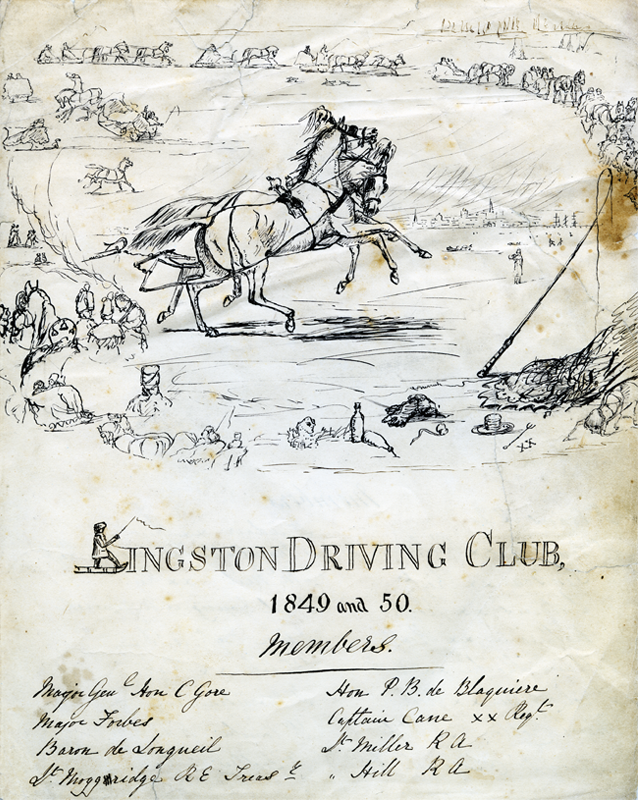 KINGSTON DRIVING CLUB,
1849 and 50.
Members.
Major Genl Hon C Gore
Major Forbes
Baron de Longueil
Lt Moggridge RE Treasr
Hon P. B. de Blaquiere
Captain Cane XX Regt
Lt Miller RA
" Hill RA